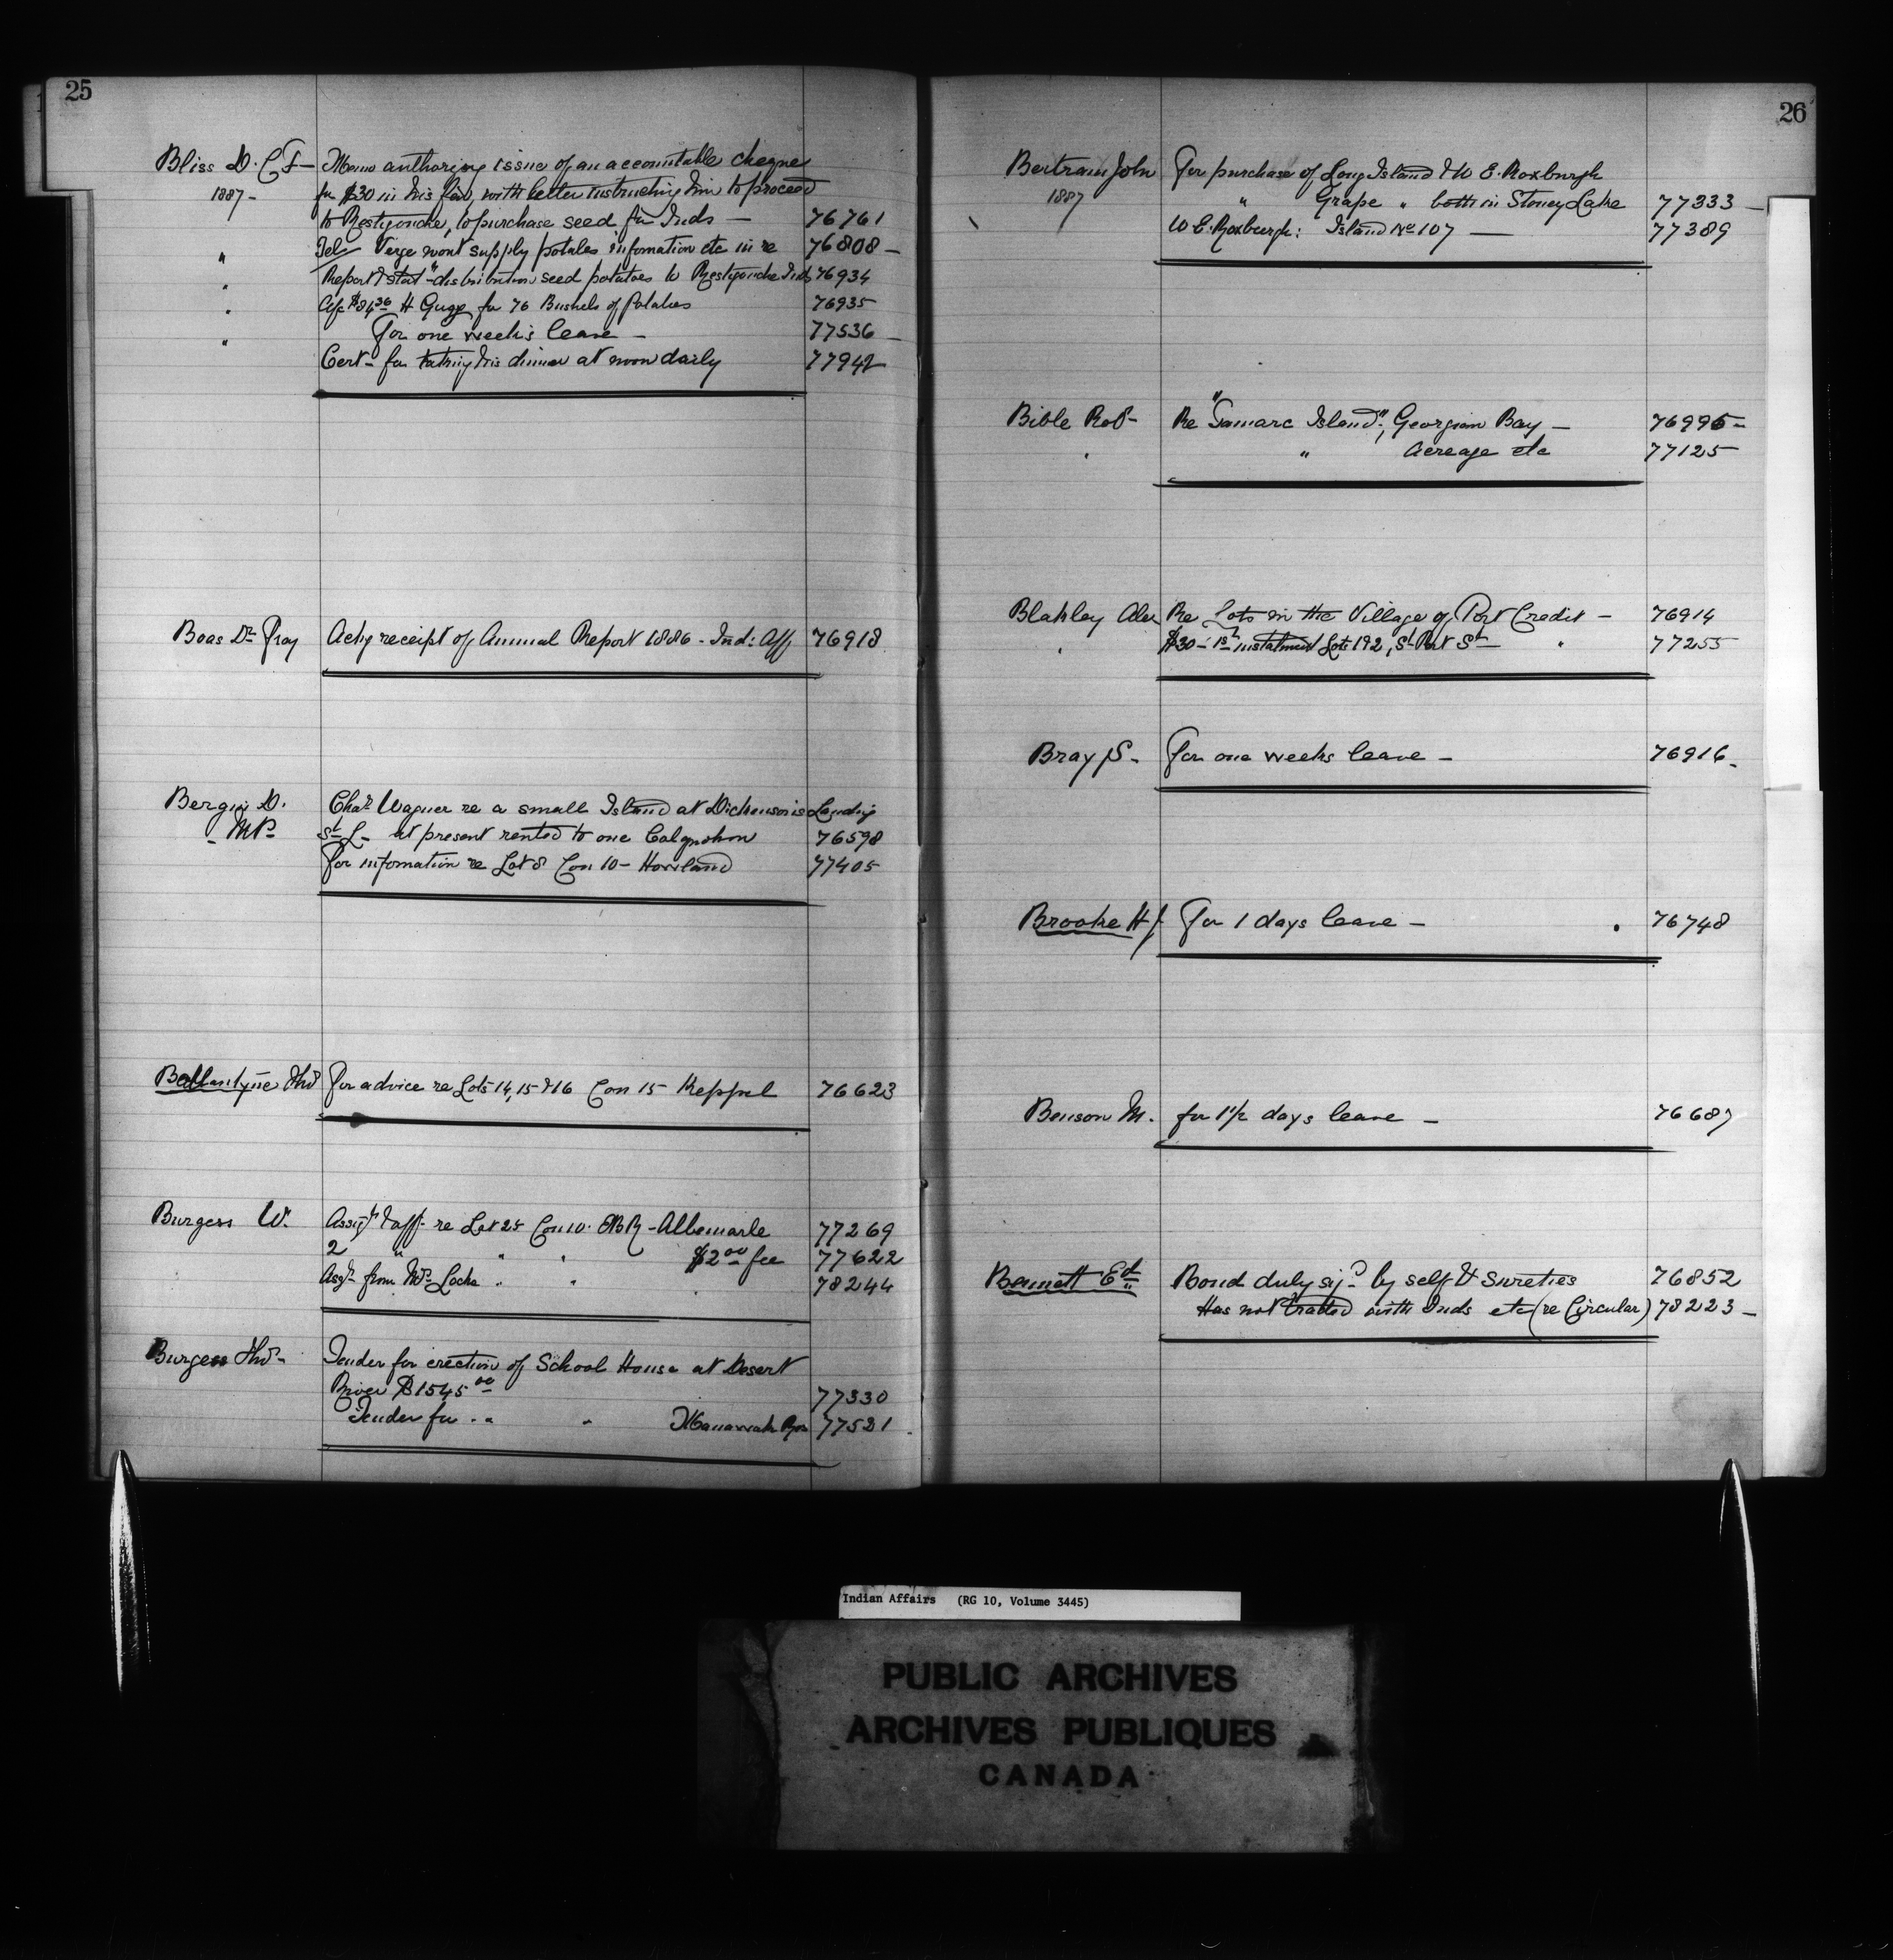 25
Bliss D. C F — Memo authorizing issue of an accountable cheque
1887 - for $30 in his fav, with letter instructing him to proceed
to Restigouche, to purchase seed for Inds — 76761
" Tel Verge wont supply potatoes information etc in re 76808 —
" Report & stat - distribution seed potatoes to Restigouche Inds 76934
" a/c $84.36 H Gugg for 76 Bushels of Potatoes 76935
" For one week's leave — 77536 —
Cert - for taking his dinner at noon daily 77942
Boas Dr Fraz Ackg receipt of Annual Report 1886 - Ind: Aff 76918
Bergin D. Chas Wagner re a small Island at Dickenson's Landing
- MP - St L - at present rented to one Colquohon 76598
For information re Lot 8 Con 10 - Howland 77405
Ballantyne Thos For advice re Lots 14, 15 & 16 Con 15 Keppel 76623
Burgess W. Assigt & aff - re Lot 25 Con 10. EBR - Albemarle 77269
2 " " " $2.00 fee 77622
Asgt from Mrs Locke " " 78244
Burgess Thos - Tender for erection of School House at Desert
River $1545.00 77330
Tender for " " " 77521
26
Bertram John For purchase of Long Island & W E. Roxburgh
1887 " Grape " both in Stoney Lake 77333 —
W. E. Roxburgh: Island No 107 — 77389
Bible Robt - Re "Tamarc Island", Georgian Bay — 76995 -
" " Acreage etc 77125
Blakley Alex Re Lots in the Village of Port Credit — 76914
" $30 - 1st instalment Lots 1 & 2, St Port St — " 77255
Bray S. - For one weeks leave — 76916 -
Brooke H J. For 1 days leave — 76748
Benson M. for 1 1/2 days leave — 76687
Bennett Ed Bond duly sigd by self & sureties 76852
Has not traded with Inds etc (re Circular) 78223 —
Indian Affairs (RG 10, Volume 3445)
PUBLIC ARCHIVES
ARCHIVES PUBLIQUES
CANADA